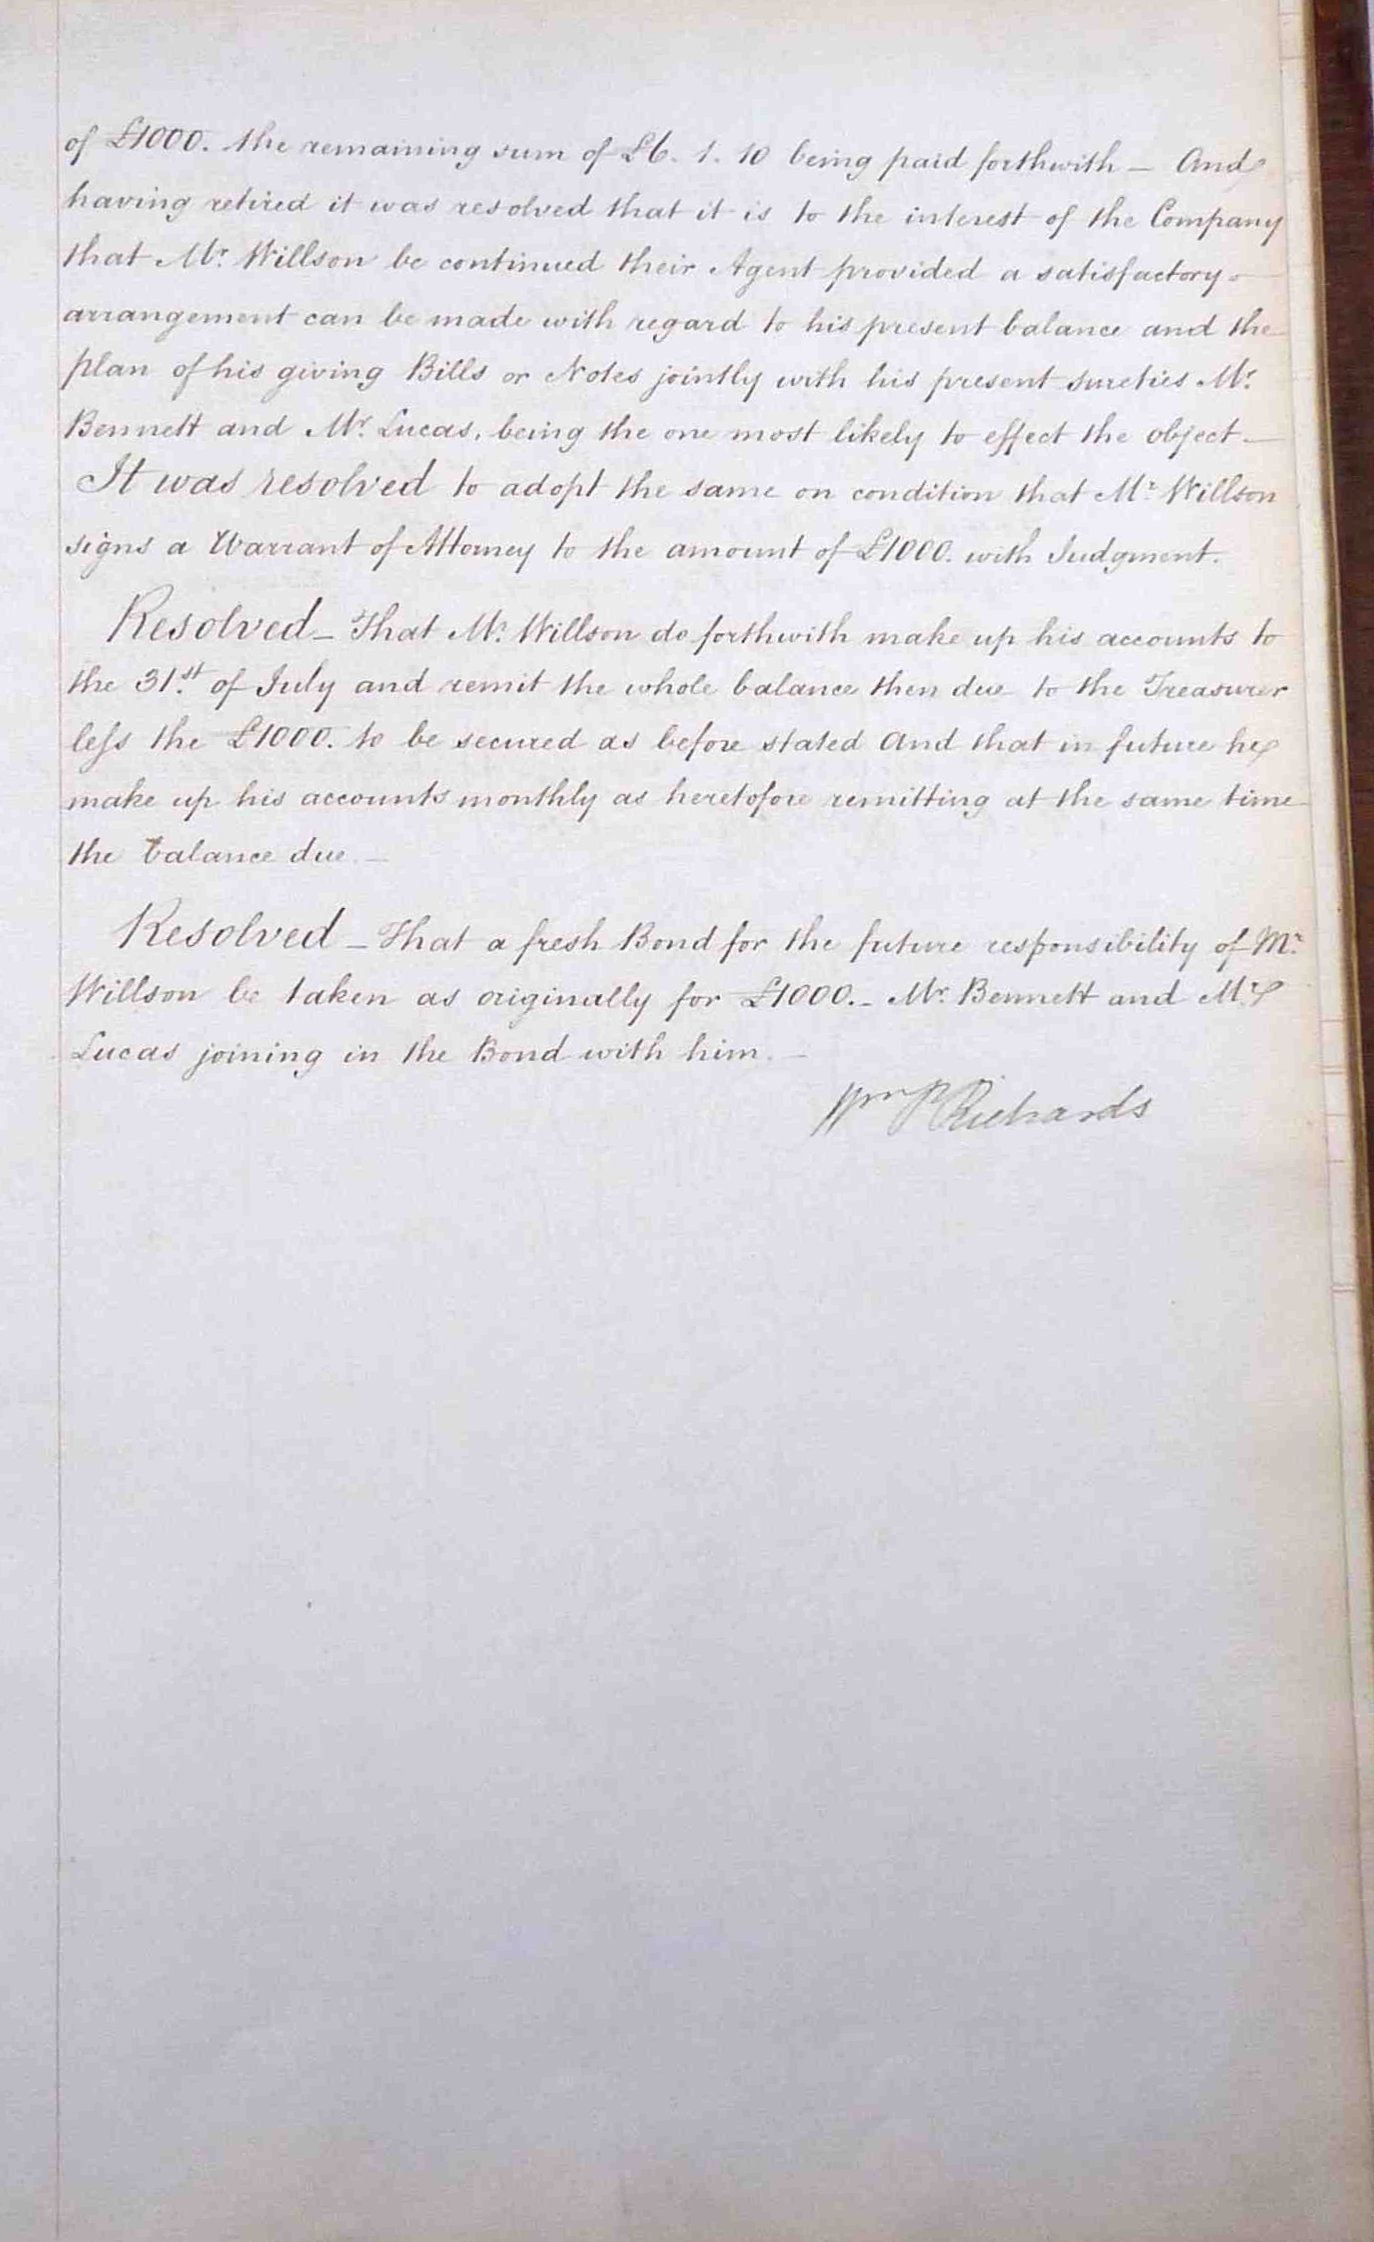 of £1000. the remaining sum of £6. 1. 10 being paid forthwith — And
having retired it was resolved that it is to the interest of the Company
that Mr. Willson be continued their Agent provided a satisfactory
arrangement can be made with regard to his present balance and the
plan of his giving Bills or Notes jointly with his present sureties Mr.
Bennett and Mr. Lucas, being the one most likely to effect the object —
It was resolved to adopt the same on condition that Mr. Willson
signs a Warrant of Attorney to the amount of £1000. with Judgment.
Resolved — That Mr. Willson do forthwith make up his accounts to
the 31.st of July and remit the whole balance then due to the Treasurer
leſs the £1000. to be secured as before stated And that in future he
make up his accounts monthly as heretofore remitting at the same time
the balance due. —
Resolved — That a fresh Bond for the future responsibility of Mr.
Willson be taken as originally for £1000. — Mr. Bennett and Mr.
Lucas joining in the Bond with him. —
Wm P Richards